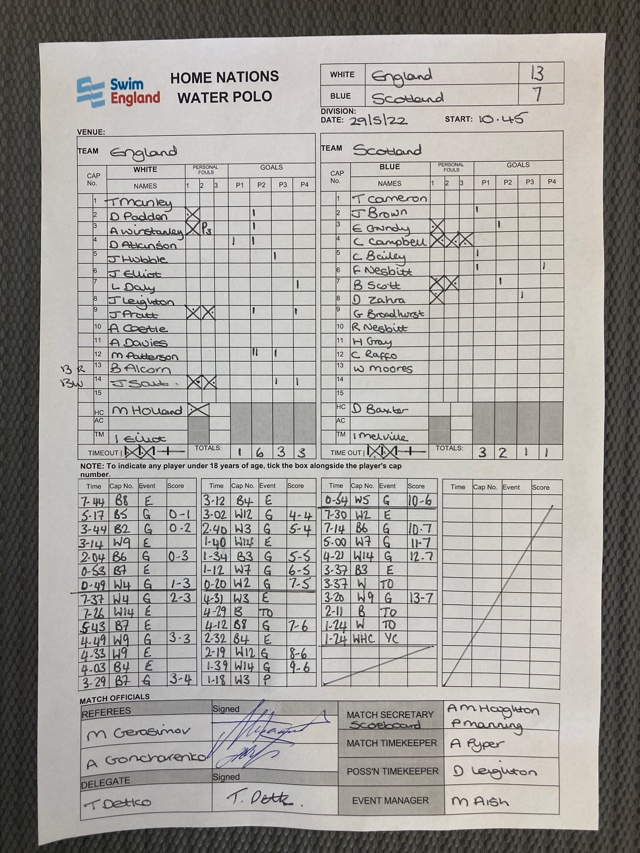 Swim England
HOME NATIONS
WATER POLO
WHITE England 13
BLUE Scotland 7
DIVISION:
DATE: 29/5/22 START: 10.45
VENUE:
TEAM England
CAP No. WHITE NAMES PERSONAL FOULS 1 2 3 GOALS P1 P2 P3 P4
1 T Manley
2 D Padden X I
3 A Winstanley X P3 I
4 D Atkinson I I
5 J Hubble I
6 J Elliot
7 L Daly I
8 J Leighton
9 J Pratt X X I I
10 A Castle
11 A Davies
12 M Patterson II I
13 R 13 B Alcorn
13 W 14 J X X I I
15
HC M Holland X
AC
TM
TIMEOUT TOTALS: 1 6 3 3
TEAM Scotland
CAP No. BLUE NAMES PERSONAL FOULS 1 2 3 GOALS P1 P2 P3 P4
1 T Cameron
2 J Brown I
3 E Grundy X I
4 C Campbell X X X
5 C Bailey I
6 F Nesbitt I I
7 B Scott X X I
8 D Zahra X I
9 G Broadhurst
10 R Nesbitt
11 H Gray
12 C Raffo
13 W Moores
14
15
HC D Baxter
AC
TM I Melville
TIMEOUT TOTALS: 3 2 1 1
NOTE: To indicate any player under 18 years of age, tick the box alongside the player's cap
number.
Time Cap No. Event Score
7-44 B8 E
5-17 B5 G 0-1
3-44 B2 G 0-2
3-14 W9 E
2-04 B6 G 0-3
0-53 B7 E
0-49 W4 G 1-3
7-37 W4 G 2-3
7-26 W14 E
5-43 B7 E
4-49 W9 G 3-3
4-33 W9 E
4-03 B4 E
3-29 B7 G 3-4
Time Cap No. Event Score
3-12 B4 E
3-02 W12 G 4-4
2-40 W3 G 5-4
1-40 W14 E
1-34 B3 G 5-5
1-12 W12 G 6-5
0-20 W2 G 7-5
4-31 W3 E
4-29 B TO
4-12 B8 G 7-6
2-32 B4 E
2-19 W12 G 8-6
1-39 W14 G 9-6
1-18 W3 P
Time Cap No. Event Score
0-54 W5 G 10-6
7-30 W2 E
7-14 B6 G 10-7
5-00 W7 G 11-7
4-21 W14 G 12-7
3-37 B3 E
3-37 W TO
3-20 W9 G 13-7
2-11 B TO
1-24 W TO
1-24 WHC YC
Time Cap No. Event Score
MATCH OFFICIALS
REFEREES Signed
M Gerasimov
A Goncharenko
DELEGATE Signed
T Detko
MATCH SECRETARY A M Haughton
Scoreboard P Manning
MATCH TIMEKEEPER A Pyper
POSS'N TIMEKEEPER D Leighton
EVENT MANAGER M Aish